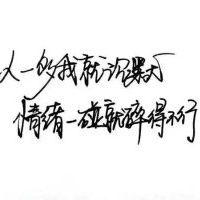 人一多我就沉默
情绪一碰就碎得不行